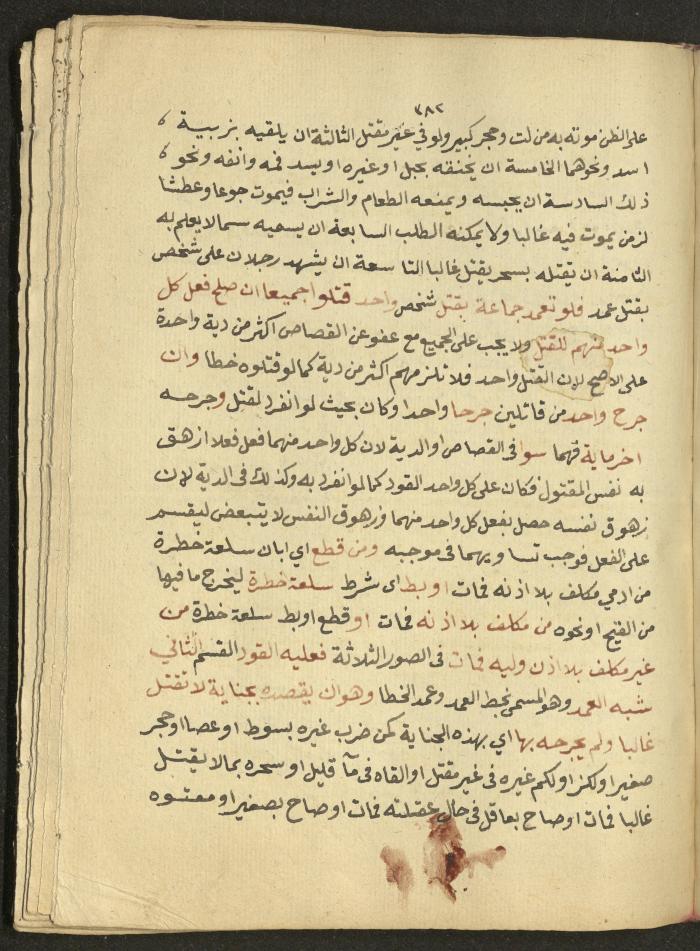 ٣٨٢
على الظن موته به من لت وحجر كبير ولو في غير مقتل الثالثة ان يلقيه بزبية
اسد ونحوهما الخامسة ان يخنقه بحبل او غيره او يسد فمه وانفه ونحو
ذلك السادسة ان يحبسه ويمنعه الطعام والشراب فيموت جوعا وعطشا
لزمن يموت فيه غالبا ولا يمكنه الطلب السابعة ان يسميه سما لا يعلم به
الثامنة ان يقتله بسحر يقتل غالبا التاسعة ان يشهد رجلان على شخص
بقتل عمد فلو تعمد جماعة بقتل شخص واحد قتلوا جميعا ان صلح فعل كل
واحد منهم للقتل ولا يجب على الجميع مع عفو عن القصاص اكثر من دية واحدة
على الاصح لان القتل واحد فلا تلزمهم اكثر من دية كما لو قتلوه خطا وان
جرح واحد من قاتلين جرحا واحدا وكان بحيث لو انفرد لقتل وجرحه
اخر ماية فهما سوا في القصاص او الدية لان كل واحد منهما فعل فعلا ازهق
به نفس المقتول فكان على كل واحد القود كما لو انفرد به وكذلك في الدية لان
زهوق نفسه حصل بفعل كل واحد منهما وزهوق النفس لا يتبعض ليقسم
على الفعل فوجب تساويهما في موجبه ومن قطع اي ابان سلعة خطرة
من ادمي مكلف بلا اذنه فمات او بط اى شرط سلعة خطرة ليخرج ما فيها
من القيح او نحوه من مكلف بلا اذنه فمات او قطع او بط سلعة خطرة من
غير مكلف بلا اذن وليه فمات في الصور الثلاثة فعليه القود القسم الثاني
شبه العمد وهو المسمى بخطا العمد وعمد الخطا وهو ان يقصده بجناية لا تقتل
غالبا ولم يجرحه بها اي بهذه الجناية كمن ضرب غيره بسوط او عصا او حجر
صغير او لكز او لكم غيره في غير مقتل او القاه في مآ قليل او سحره بما لا يقتل
غالبا فمات او صاح بعاقل في حال غفلته فمات او صاح بصغير او معتوه